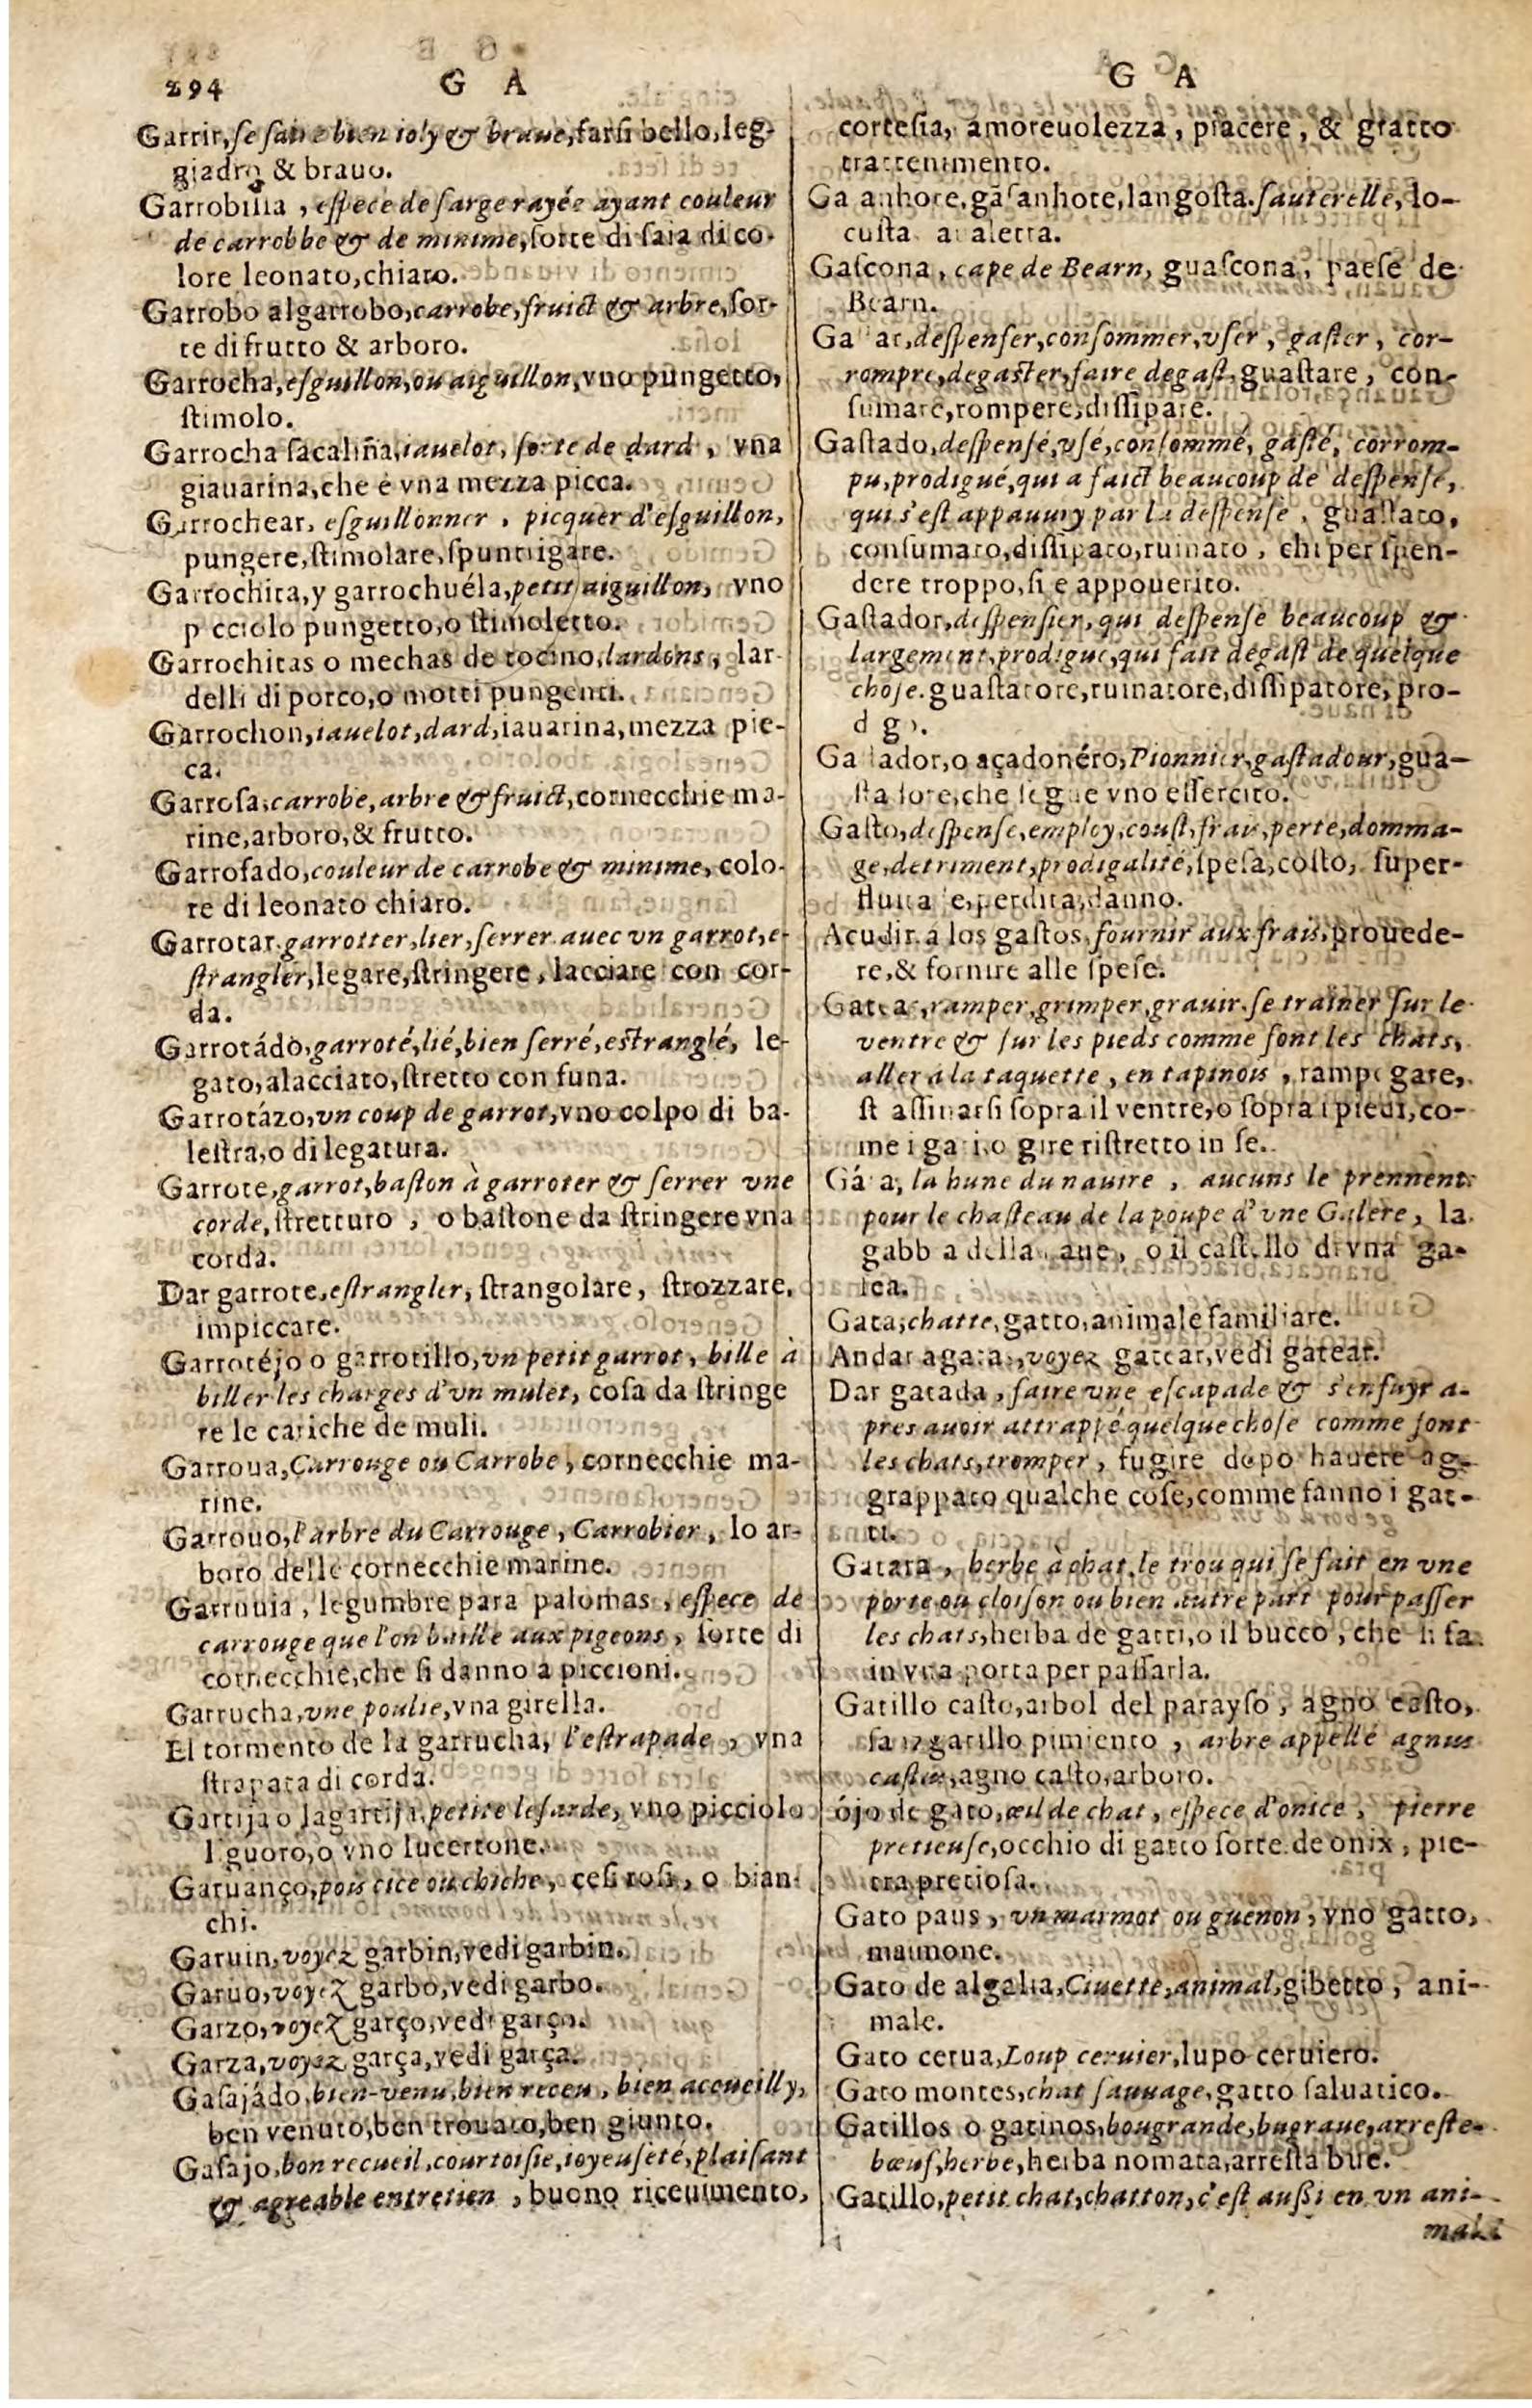 294 G A
Garrir, se faire bien ioly & braue, farsi bello, leg-
giadro & brauo.
Garrobilla, espece de sarge rayée ayant couleur
de carrobbe & de minime, sorte di saia di co-
lore leonato, chiaro.
Garrobo algarrobo, carrobe, fruict & arbre, sor-
te di frutto & arboro.
Garrocha, esguillon, ou aiguillon, vno pungetto,
stimolo.
Garrocha sacaliña, iauelot, sorte de dard, vna
giauarina, che è vna mezza picca.
Garrochear, esguillonner, picquer d'esguillon,
pungere, stimolare, spuntigare.
Garrochita, y garrochuéla, petit aiguillon, vno
p cciolo pungetto, o stimoletto.
Garrochitas o mechas de tocino, lardons, lar-
delli di porco, o motti pungenti.
Garrochon, iauelot, dard, iauarina, mezza pic-
ca.
Garrofa, carrobe, arbre & fruict, cornecchie ma-
rine, arboro, & frutto.
Garrofado, couleur de carrobe & minime, colo-
re di leonato chiaro.
Garrotar, garrotter, lier, serrer auec vn garrot, e-
strangler, legare, stringere, lacciare con cor-
da.
Garrotádo, garroté, lié, bien serré, estranglé, le-
gato, alacciato, stretto con funa.
Garrotázo, vn coup de garrot, vno colpo di ba-
lestra, o di legatura.
Garrote, garrot, baston à garroter & serrer vne
corde, stretturo, o bastone da stringere vna
corda.
Dar garrote, estrangler, strangolare, strozzare,
impiccare.
Garrotéjo o garrotillo, vn petit garrot, bille à
biller les charges d'vn mulet, cosa da stringe
re le cariche de muli.
Garroua, Carrouge ou Carrobe, cornecchie ma-
rine.
Garrouo, l'arbre du Carrouge, Carrobier, lo ar-
boro delle cornecchie marine.
Garruuia, legumbre para palomas, espece de
carrouge que l'on baille aux pigeons, sorte di
cornecchie, che si danno a piccioni.
Garrucha, vne poulie, vna girella.
El tormento de la garrucha, l'estrapade, vna
strapata di corda.
Gartija o lagartija, petite lesarde, vno picciolo
l guoro, o vno lucertone.
Garuanço, pois cice ou chiche, cesi rosi, o bian-
chi.
Garuin, voyez garbin, vedi garbin.
Garuo, voyez garbo, vedi garbo.
Garzo, voyez garço, vedi garço.
Garza, voyez garça, vedi garça.
Gasajádo, bien-venu, bien receu, bien accueilly,
ben venuto, ben trouato, ben giunto.
Gasajo, bon recueil, courtoisie, ioyeuseté, plaisant
& agreable entretien, buono riceuimento,
G A
cortesia, amoreuolezza, piacere, & gratto
trattenimento.
Ga anhote, gasanhote, langosta. sauterelle, lo-
custa
Gascona, cape de Bearn, guascona, paese de
Bearn.
Ga ar, despenser, consommer, vser, gaster, cor-
rompre, degaster, faire degast, guastare, con-
sumare, rompere, dissipare.
Gastado, despensé, vsé, consommé, gasté, corrom-
pu, prodigué, qui a faict beaucoup de despense,
qui s'est appauury par la despense, guastato,
consumato, dissipato, ruinato, chi per spen-
dere troppo, si e appouerito.
Gastador, despensier, qui despense beaucoup &
largement, prodigue, qui fait degast de quelque
chose. guastatore, ruinatore, dissipatore, pro-
d go.
Ga tador, o açadonéro, Pionnier, gastadour, gua-
sta tore, che segue vno essercito.
Gasto, despense, employ, coust, frais, perte, domma-
ge, detriment, prodigalité, spesa, costo, super-
fluita e, perdita, danno.
Acudir á los gastos, fournir aux frais, prouede-
re, & fornire alle spese.
Gatea, ramper, grimper, grauir, se trainer sur le
ventre & sur les pieds comme font les chats,
aller á la taquette, en tapinois, rampegare,
st assinarsi sopra il ventre, o sopra i piedi, co-
me i ga i, o gire ristretto in se.
Gá a, la hune du nauire, aucuns le prennent
pour le chasteau de la poupe d'vne Galere, la
gabb a della aue, o il castello di vna ga-
lea.
Gata, chatte, gatto, animale familiare.
Andar a gatas, voyez gatear, vedi gatear.
Dar gatada, faire vne escapade & s'enfuyr a-
pres auoir attrappé quelque chose comme font
les chats, tromper, fugire dopo hauere ag-
grappato qualche cose, comme fanno i gat-
ti.
Gatara, herbe à chat, le trou qui se fait en vne
porte ou cloison ou bien autre part pour passer
les chats, herba de gatti, o il bucco, che si fa
in vna porta per passarla.
Gatillo casto, arbol del parayso, agno casto,
sauzgatillo pimiento, arbre appellé agnus
castus, agno casto, arboro.
ójo de gato, œil de chat, espece d'onice, pierre
pretieuse, occhio di gatto sorte de onix, pie-
tra pretiosa.
Gato paus, vn marmot ou guenon, vno gatto,
maumone.
Gato de algalia, Ciuette, animal, gibetto, ani-
male.
Gato cerua, Loup ceruier, lupo ceruiero.
Gato montes, chat sauuage, gatto saluatico.
Gatillos o gatinos, bougrande, bugraue, arreste-
bœuf, herbe, herba nomata, arresta bue.
Gatillo, petit chat, chatton, c'est aussi en vn ani-
mali